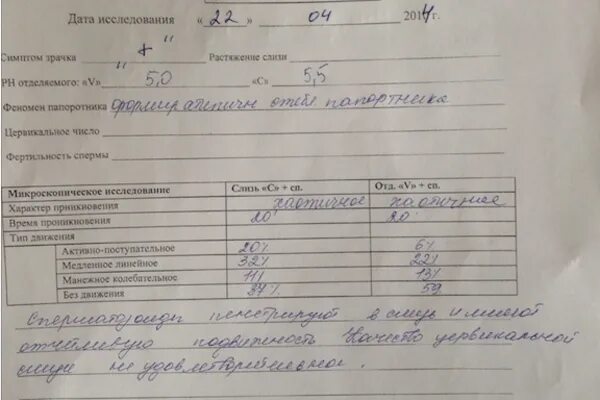 Дата исследования «22» 04 2014г.
Симптом зрачка "+" Растяжение слизи
РН отделяемого: «V» 5,0 «С» 5,5
Феномен папоротника стебл папортника
Цервикальное число
Фертильность спермы
Микроскопическое исследование Слизь «С» + сп. Отд. «V» + сп.
Характер приникновения хаотичное хаотичное
Время проникновения 20' 20'
Тип движения
Активно-поступательное 20% 6%
Медленное линейное 32% 22%
Манежное колебательное 11% 13%
Без движения 37% 59
Сперматозоиды пенетрируют в слизь и имеют
отчётливую подвижность Качество цервикальной
слизи не удовлетворительное.